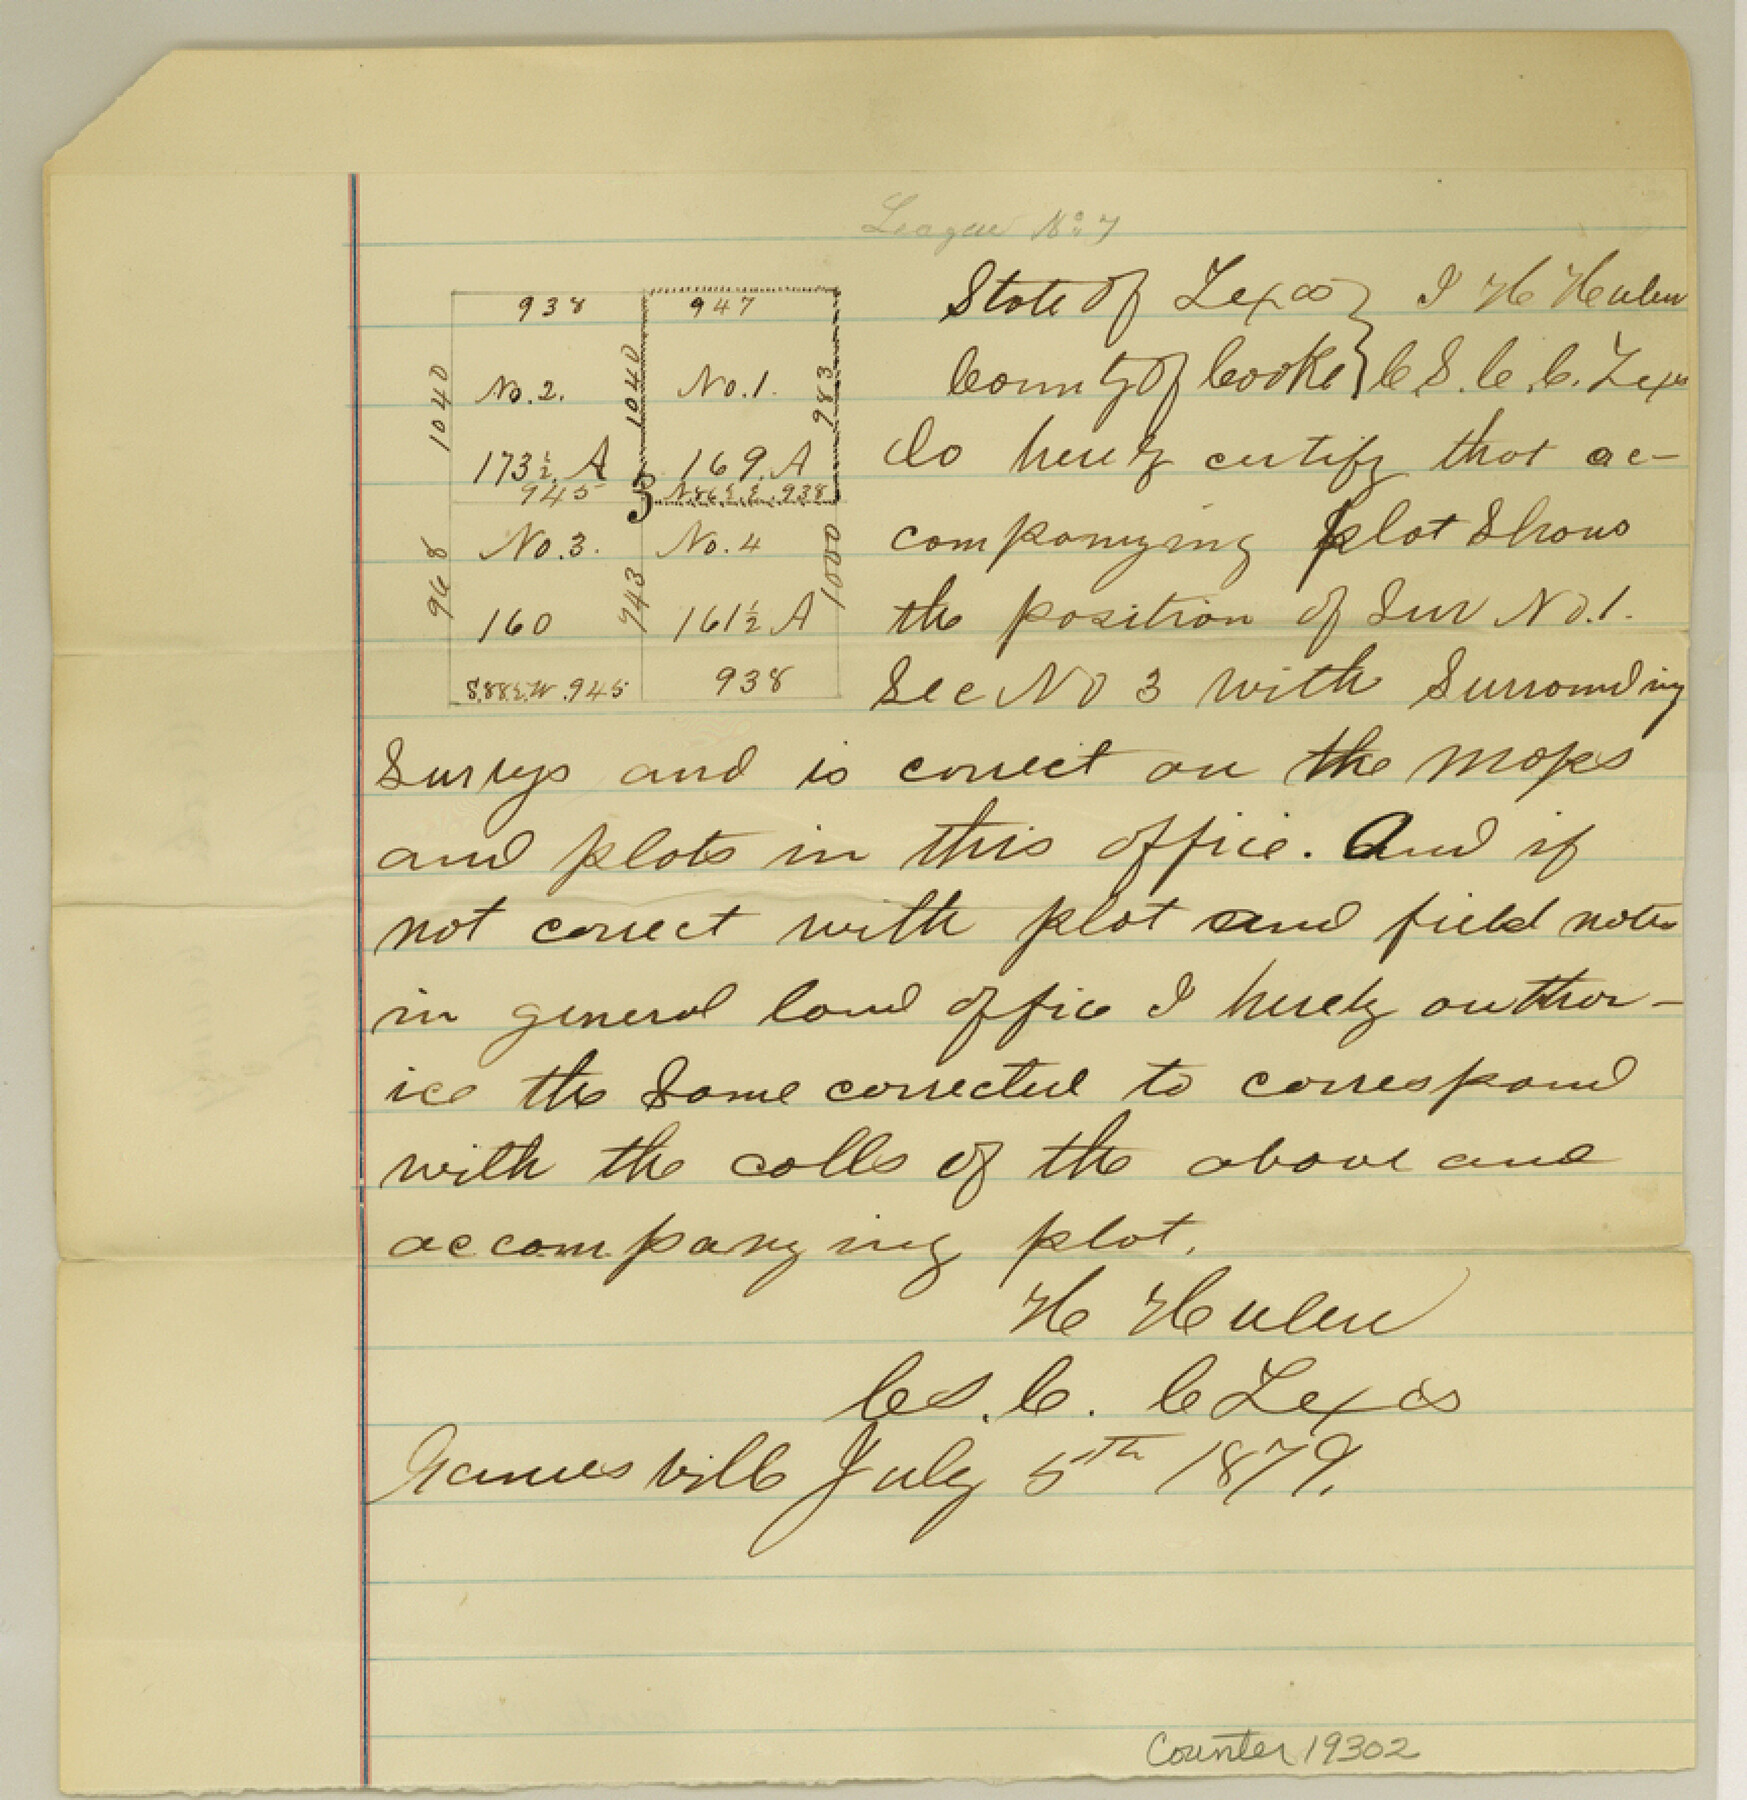 League No. 7
938 947
1040 No. 2. 1040 No. 1. 983
173½ A 169 A
945 3 N86½E 938
No. 3. No. 4
968 943 1000
160 161½ A
S.88½W. 945 938
State of Texas } I H Hulen
County of Cooke } C S. C. C. Texas
do hereby certify that ac-
companying plot Shows
the position of Sur No. 1.
Sec No 3 with Surrounding
Surveys and is correct on the maps
and plots in this office. And if
not correct with plot and field notes
in general land office I hereby author-
ice the Same corrected to correspond
with the calls of the above and
accompanying plot.
H Hulen
C S. C. C Texas
Gainesville July 5th 1879.
Counter 19302